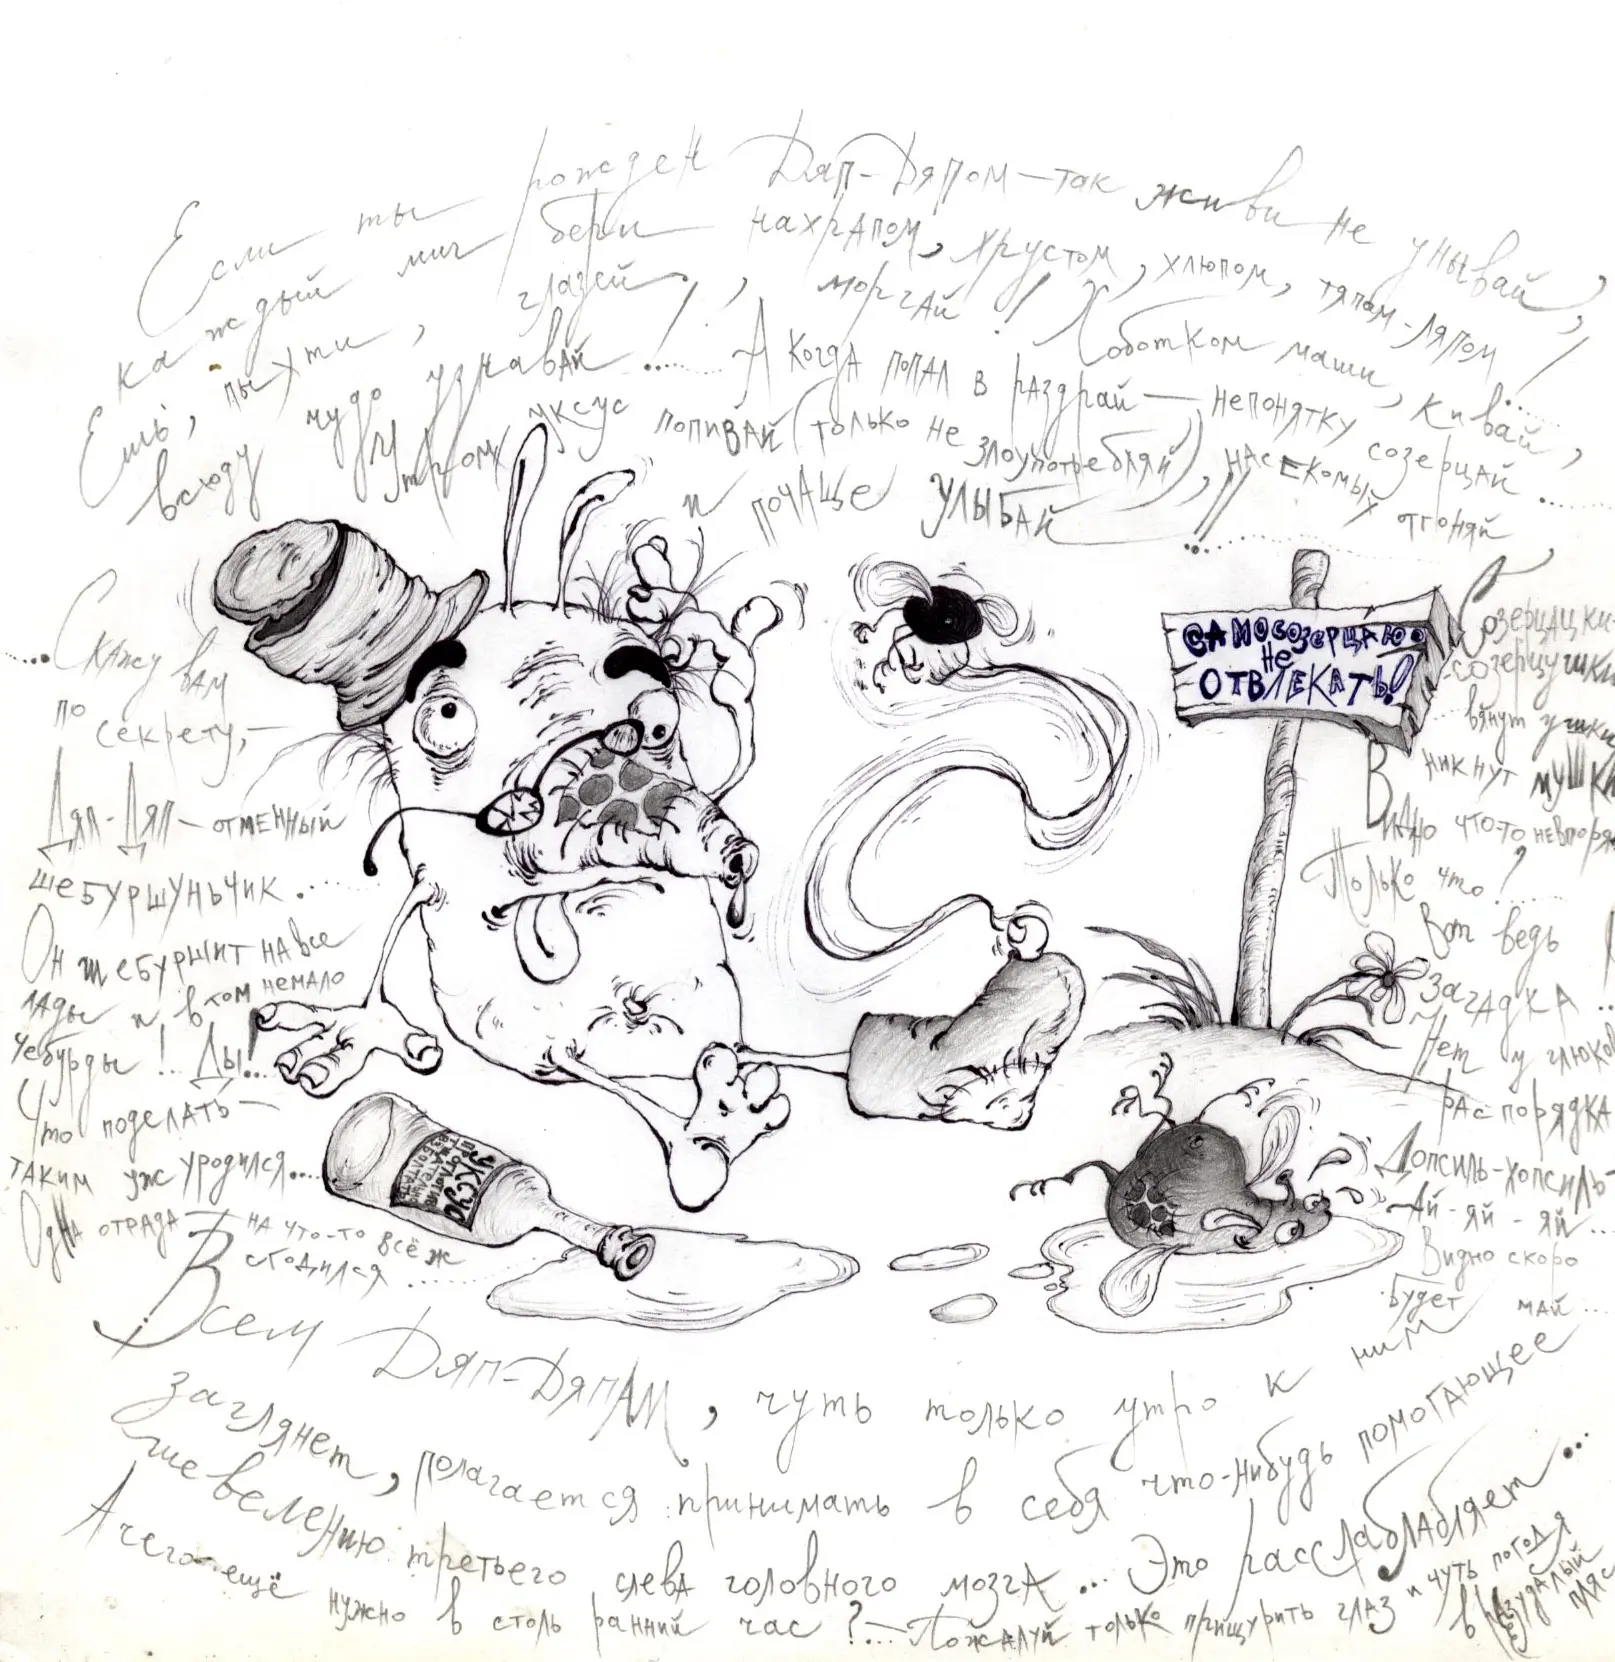 Если ты рожден Дяп-Дяпом – так живи не унывай,
каждый миг бери нахрапом, хрустом, хлюпом, тяпом-ляпом!
Ешь, пыхти, глазей!, моргай! Хоботком маши, кивай,
всюду чудо узнавай!....... А когда попал в раздрай – непонятку созерцай......
Утром уксус попивай (только не злоупотребляй), насекомых отгоняй
и почаще улыбай!!
САМОСОЗЕРЦАЮ
НЕ
ОТВЛЕКАТЬ!
...Скажу вам
по секрету, –
Дяп-Дяп – отменный
шебуршуньчик.......
Он шебуршит на все
лады и в том немало
чебурды!.. Ды!...
Что поделать –
таким уж уродился....
Одна отрада – на что-то всё ж
сгодился..........
Созерцацки-
-созерцушки
вянут ушки
никнут мушки
Видно что-то невпоря
Только что?.......
Вот ведь
загадка...
Нет у глюков
распорядка
Допсиль-хопсиль-
-Ай-яй-яй...
Видно скоро
будет май...
УКСУС
ПРОГЛОТИВ
ТЩАТЕЛЬНО
ВЗБОЛТАТЬ
Всем Дяп-Дяпам, чуть только утро к ним
заглянет, полагается принимать в себя что-нибудь помогающее
шевелению третьего слева головного мозга... Это расслаблабляет...
А чего ещё нужно в столь ранний час?... – Пожалуй только прищурить глаз и чуть погодя
в разудалый
пляс